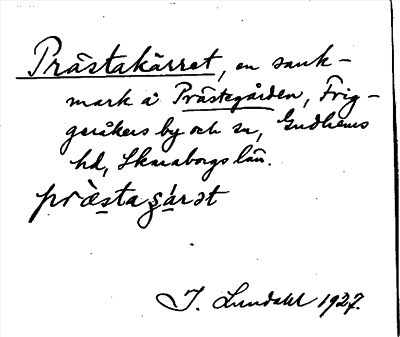 Prästakärret, en sank-
mark å Prästegården, Frig-
geråkers by och sn, Gudhems
hd, Skaraborgs län.
præ̀staʂárət
I. Lundahl 1927.